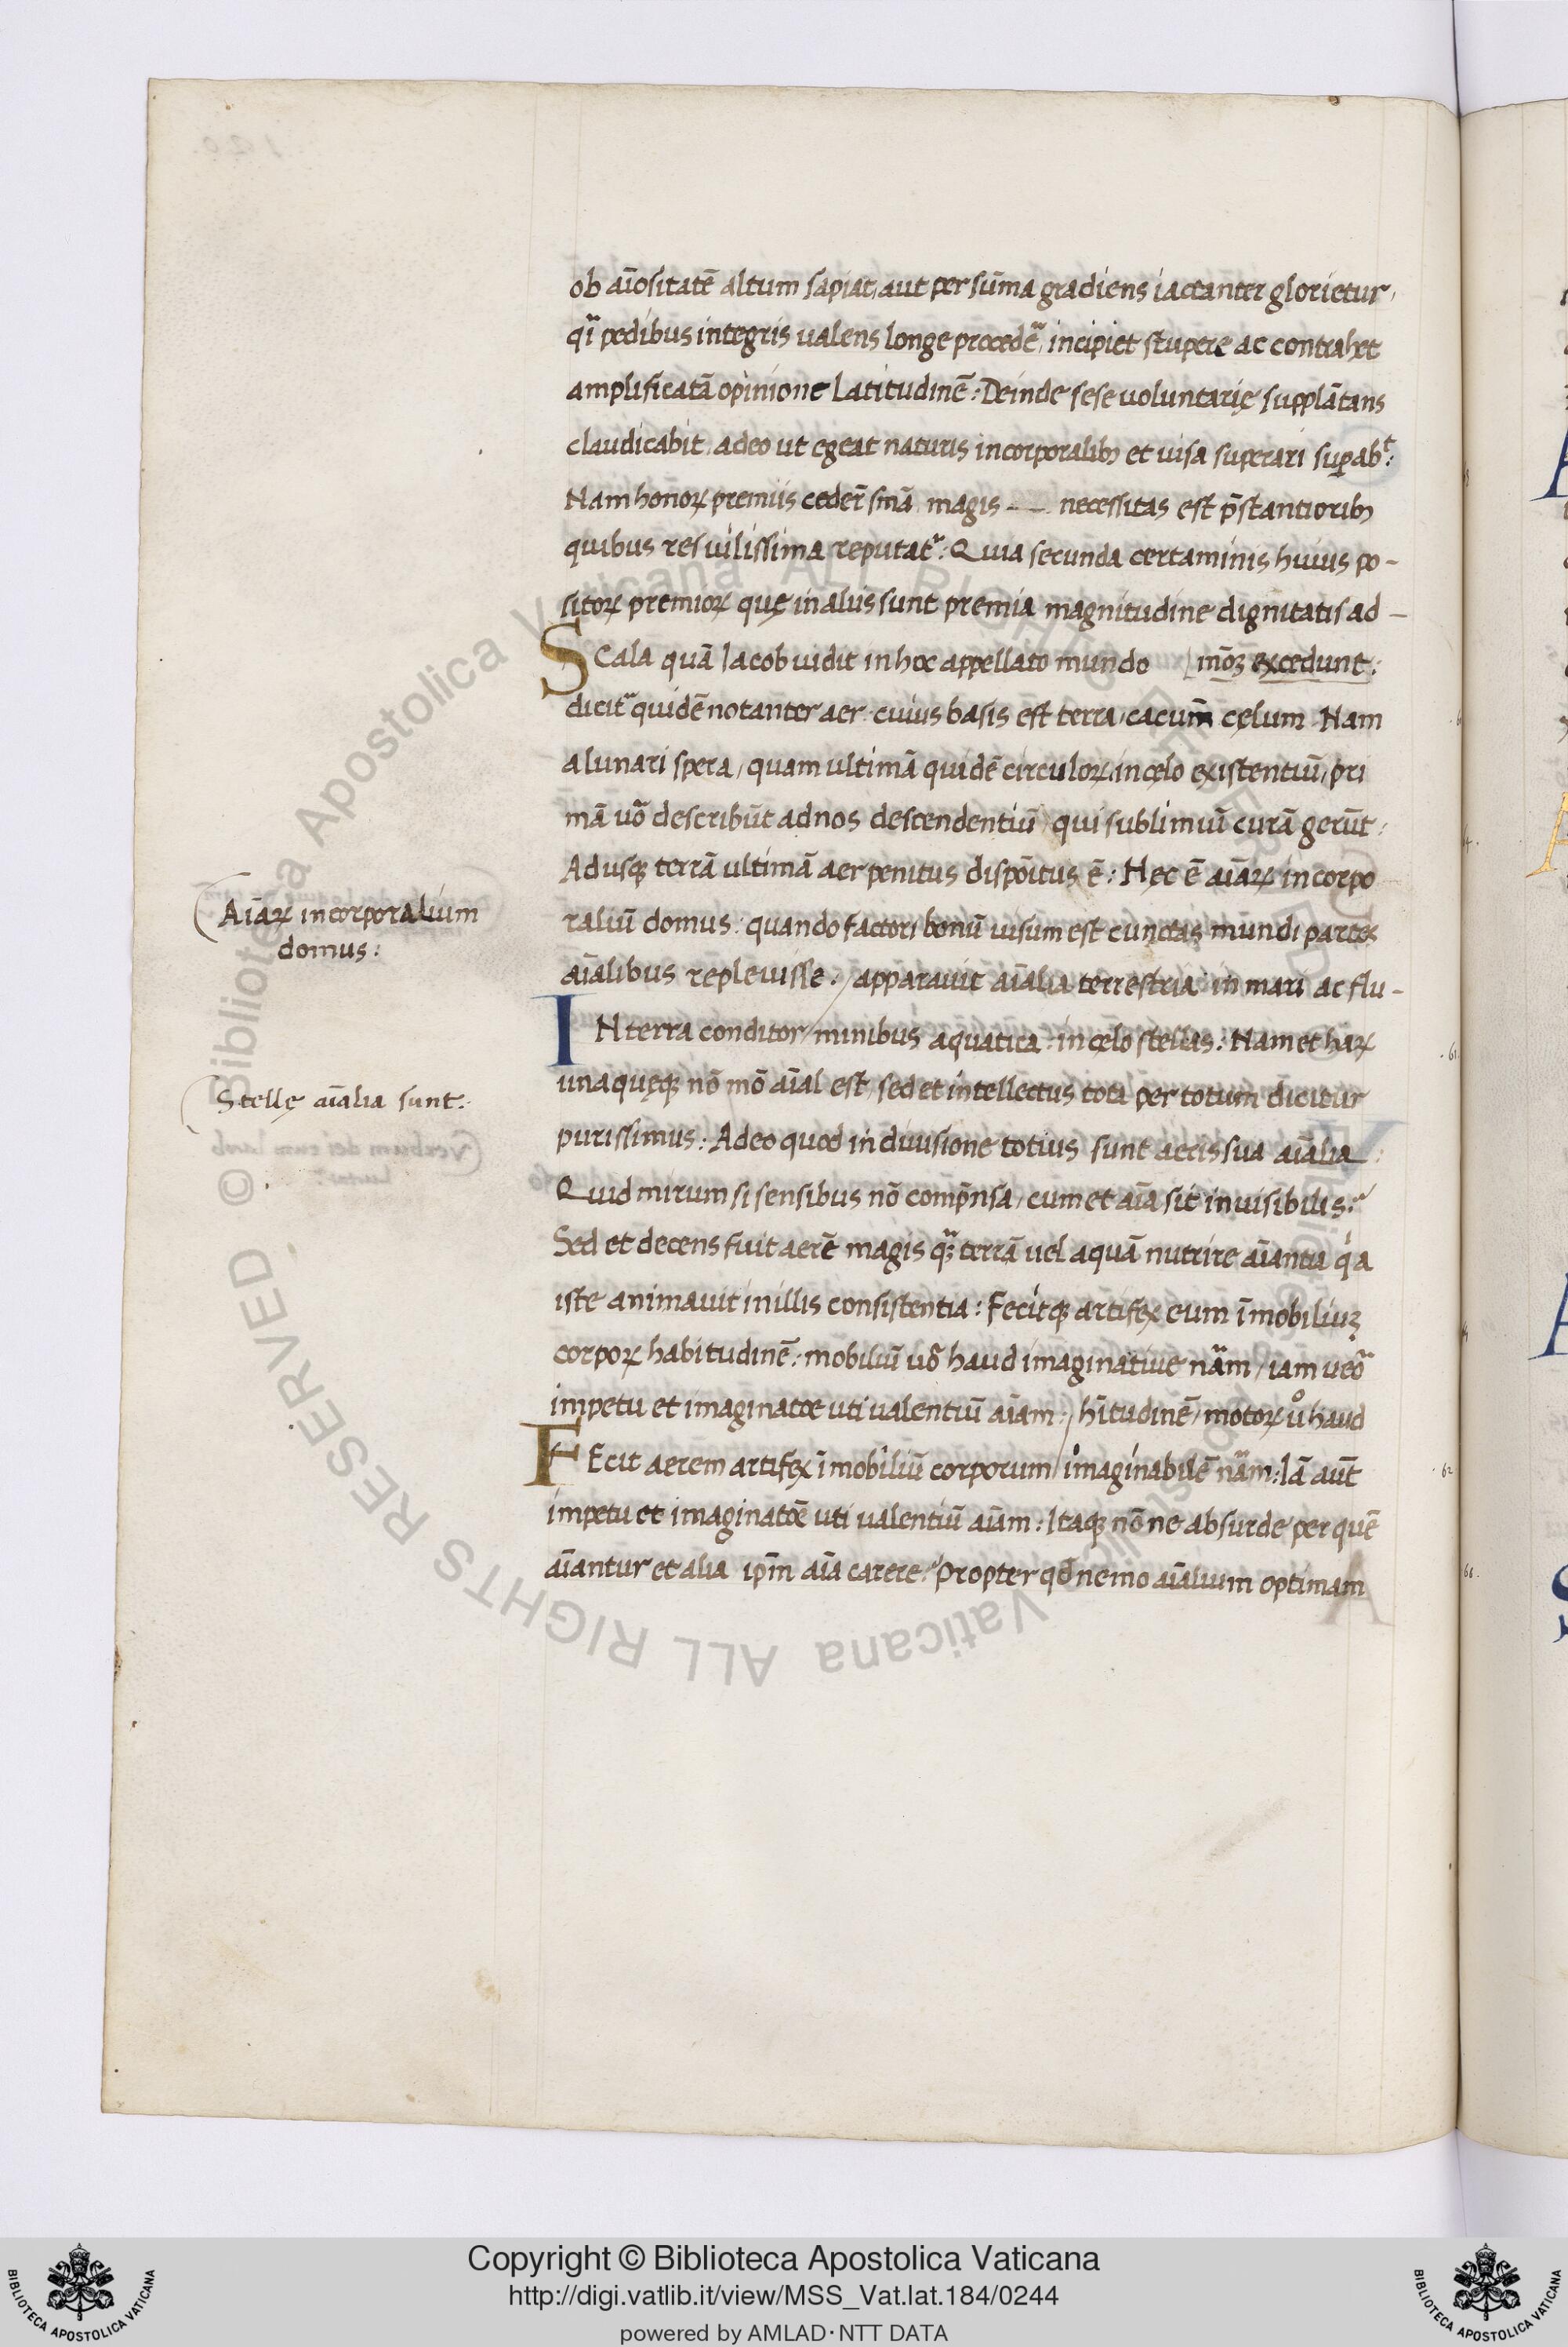 ob aīositatē altum sapiat, aut per sūma gradiens iactanter glorietur,
qi pedibus integris ualens longe procedē, incipiet stupere ac contrahet
amplificatā opinione latitudinē: Deinde sese uoluntarię supplātans
claudicabit, adeo ut egeat naturis incorporalibꝫ et uisa superari supabᵗ:
Nam honoꝝ premiis ceder̄ smā magis -- necessitas est p̄stantioribꝫ
quibus res uilissima reputatʳ: Quia secunda certaminis huius po-
sitoꝝ premioꝝ quę in aliis sunt premia magnitudine dignitatis ad-
Scala quā Iacob uidit in hoc appellato mundo mōꝫ excedunt:
dicitʳ quidē notanter aer cuius basis est terra, cacum̄ cęlum. Nam
a lunari spera, quam ultimā quidē circuloꝝ in cęlo existentiū, pri
mā uo describūt ad nos descendentiū qui sublimiū curā gerūt:
Adusqꝫ terrā ultimā aer penitus dispōitus ē: Hec ē aīaꝝ incorpo
Aīaꝝ incorporalium
domus:
raliū domus: quando factori bonū uisum est cunctas mundi partes
aīalibus repleuisse: / apparauit aīalia terrestria in mari ac flu-
IN terra conditor / minibus aquatica: in cęlo stellas: Nam et haꝝ
unaquęqꝫ nō mō aīal est, sed et intellectus toti per totum dicitur
Stellę aīalia sunt:
purissimus: Adeo quod in diuisione totius sunt aeris sua aīalia:
Quid mirum si sensibus nō comp̄nsa, cum et aīa sit inuisibilis?
Sed et decens fuit aerē magis qꝫ terrā uel aquā nutrire aīantia qa
iste animauit in illis consistentia: Fecitqꝫ artifex eum īmobiliuꝫ
corpoꝝ habitudinē: mobiliū uo haud imaginatiue nāam, iam ueo
impetu et imaginatoe uti ualentiū aīam: / hītudinē, motoꝝ uo haud
FEcit aerem artifex īmobiliū corporum / imaginabilē nāam: Iā aūt
impetu et imaginatōe uti ualentiū aīam: Itaqꝫ nōne absurde per quē
aīantur et alia ip̄m aīa carere? Propter qd nemo aīalium optimam
Copyright © Biblioteca Apostolica Vaticana
http://digi.vatlib.it/view/MSS_Vat.lat.184/0244
powered by AMLAD·NTT DATA